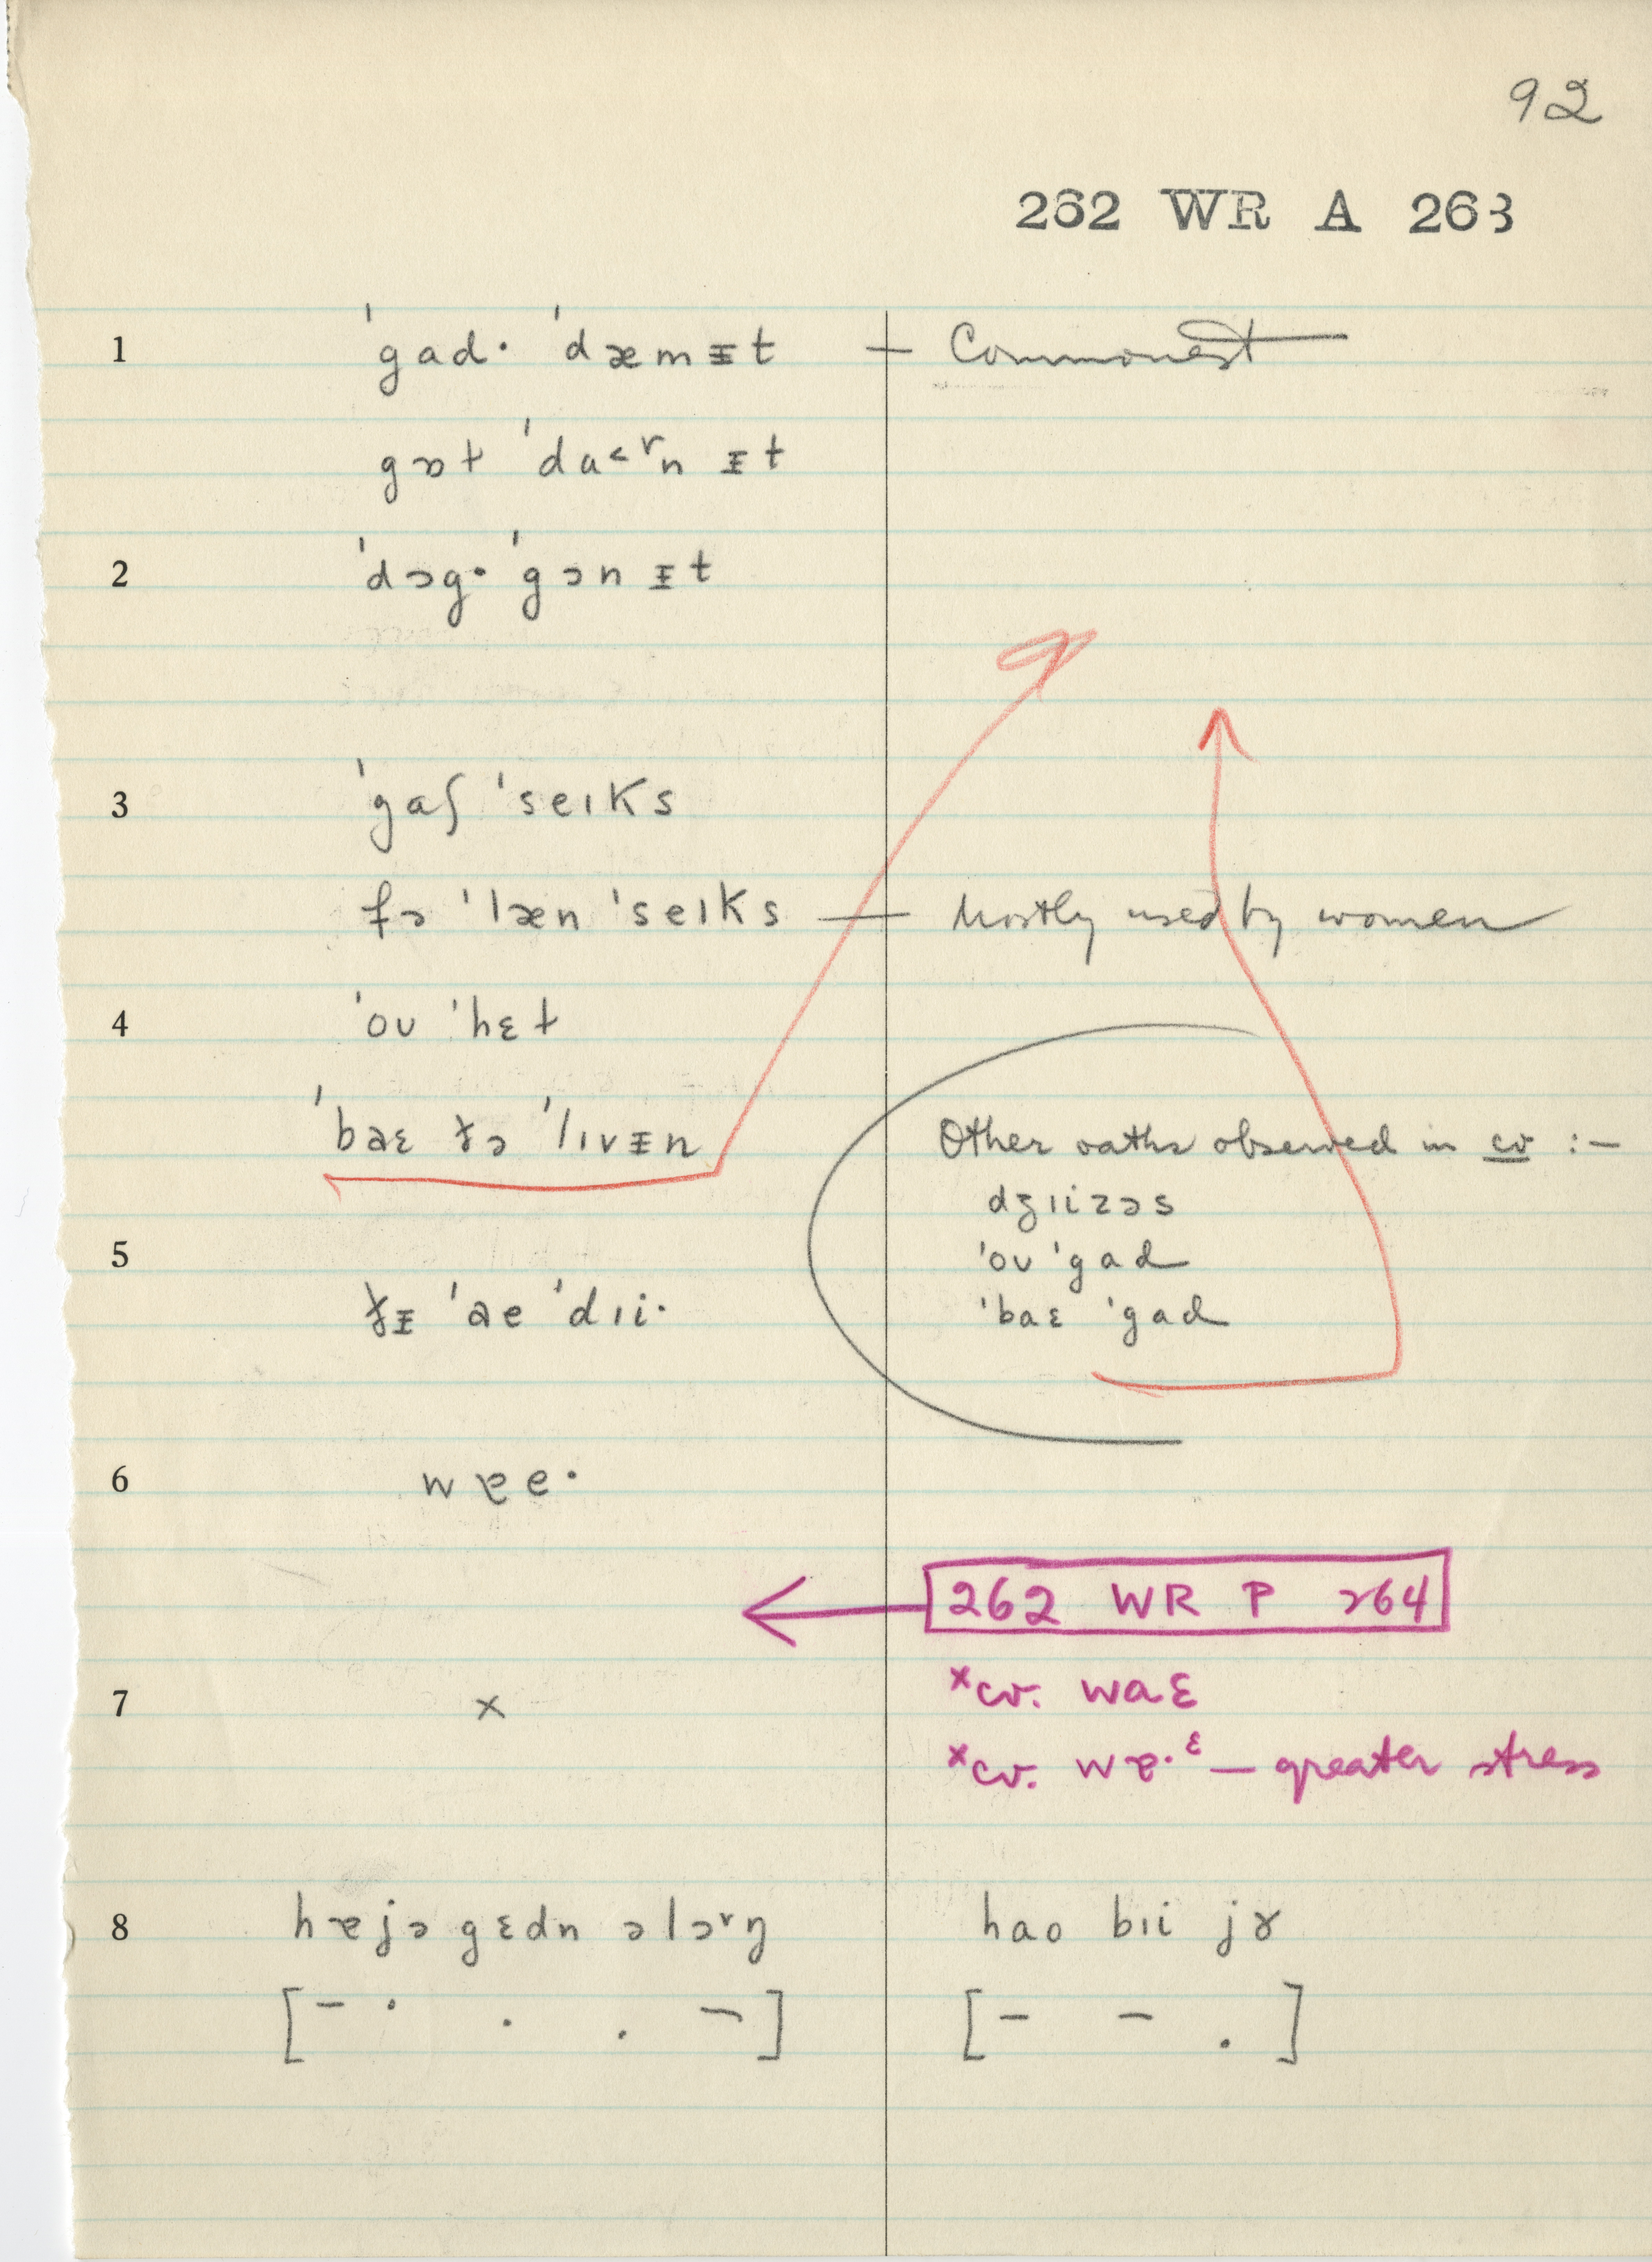 92
262 WR A 263
1 ˈgad· ˈdæmᵻt — Commonest
gɒt ˈdɑ<ʳn ᵻt
2 ˈdɔg· ˈgɔn ᵻt
3 ˈgaʃ ˈseɪks
fə ˈlæn ˈseɪks — Mostly used by women
4 ˈoʊ ˈhɛt
ˈbaɛ ðə ˈlɪvᵻn
Other oaths observed in cv :—
dʒɪizəs
5 ˈoʊ ˈgad
ˈbaɛ ˈgad
ðᵻ ˈae ˈdɪi·
6 wɐe·
262 WR P 264
7 × ×cv. waɛ
×cv. wɐ·ᵋ — greater stress
8 hæjə gɛdn əlɔʳŋ hao bɪi jɤ
[– · . . ¬] [– – .]